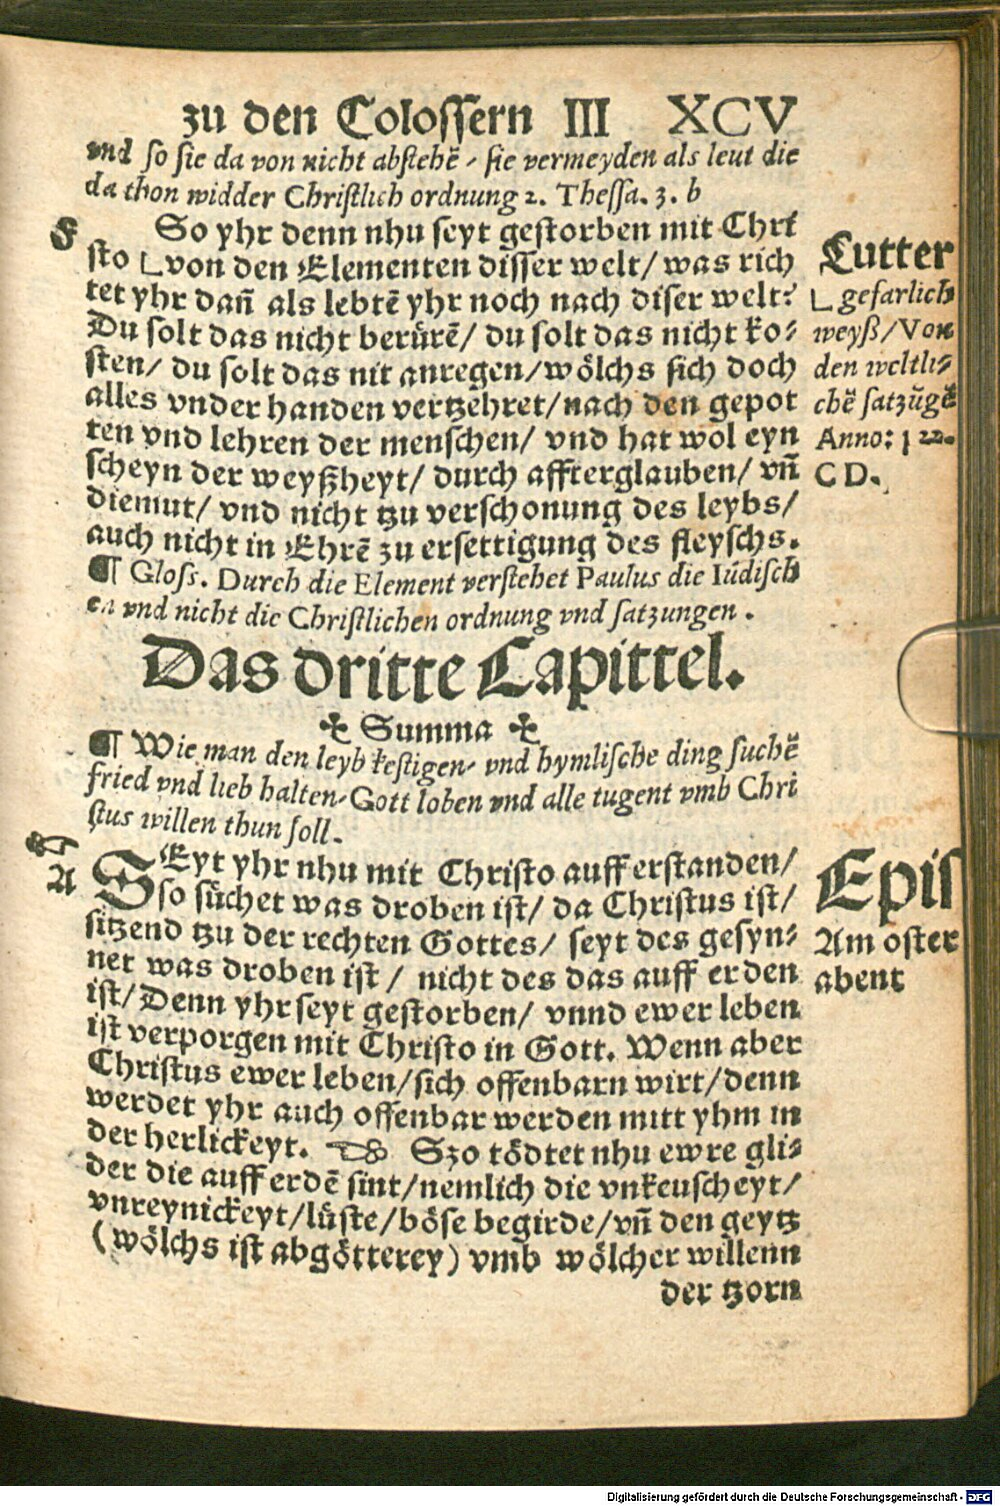 zu den Colossern III XCV
vnd so sie da von nicht abstehē / sie vermeyden als leut die
da thon widder Christlich ordnung 2. Thessa. 3. b
F
So yhr denn nhu seyt gestorben mit Chri
sto von den Elementen disser welt/ was rich
tet yhr dañ als lebtē yhr noch nach diser welt?
Du solt das nicht berürē/ du solt das nicht ko⸗
sten/ du solt das nit anregen/ wölchs sich doch
alles vnder handen vertzehret/ nach den gepot
ten vnd lehren der menschen/ vnd hat wol eyn
scheyn der weyßheyt/ durch affterglauben/ vñ
diemut/ vnd nicht tzu verschonung des leybs/
auch nicht in Ehrē zu ersettigung des fleyschs.
¶ Gloss. Durch die Element verstehet Paulus die Iüdisch
en vnd nicht die Christlichen ordnung vnd satzungen .
Lutter
gefarlich
weyß/ Von
den weltli⸗
chē satzūgē
Anno: 1 22.
C D.
Das dritte Capittel.
✣ Summa ✣
¶ Wie man den leyb kestigen/ vnd hymlische ding suchē
fried vnd lieb halten/ Gott loben vnd alle tugent vmb Chri
stus willen thun soll.
A
SEyt yhr nhu mit Christo auff erstanden/
so süchet was droben ist/ da Christus ist/
sitzend tzu der rechten Gottes/ seyt des gesyn⸗
net was droben ist / nicht des das auff erden
ist/ Denn yhr seyt gestorben/ vnnd ewer leben
ist verporgen mit Christo in Gott. Wenn aber
Christus ewer leben/ sich offenbarn wirt/ denn
werdet yhr auch offenbar werden mitt yhm in
der herlickeyt. ☜ Szo tödtet nhu ewre gli⸗
der die auff erdē sint/ nemlich die vnkeuscheyt/
vnreynickeyt/ lüste/ böse begirde/ vñ den geytz
(wölchs ist abgötterey) vmb wölcher willenn
der tzorn
Epis
Am oster
abent
Digitalisierung gefördert durch die Deutsche Forschungsgemeinschaft - DFG